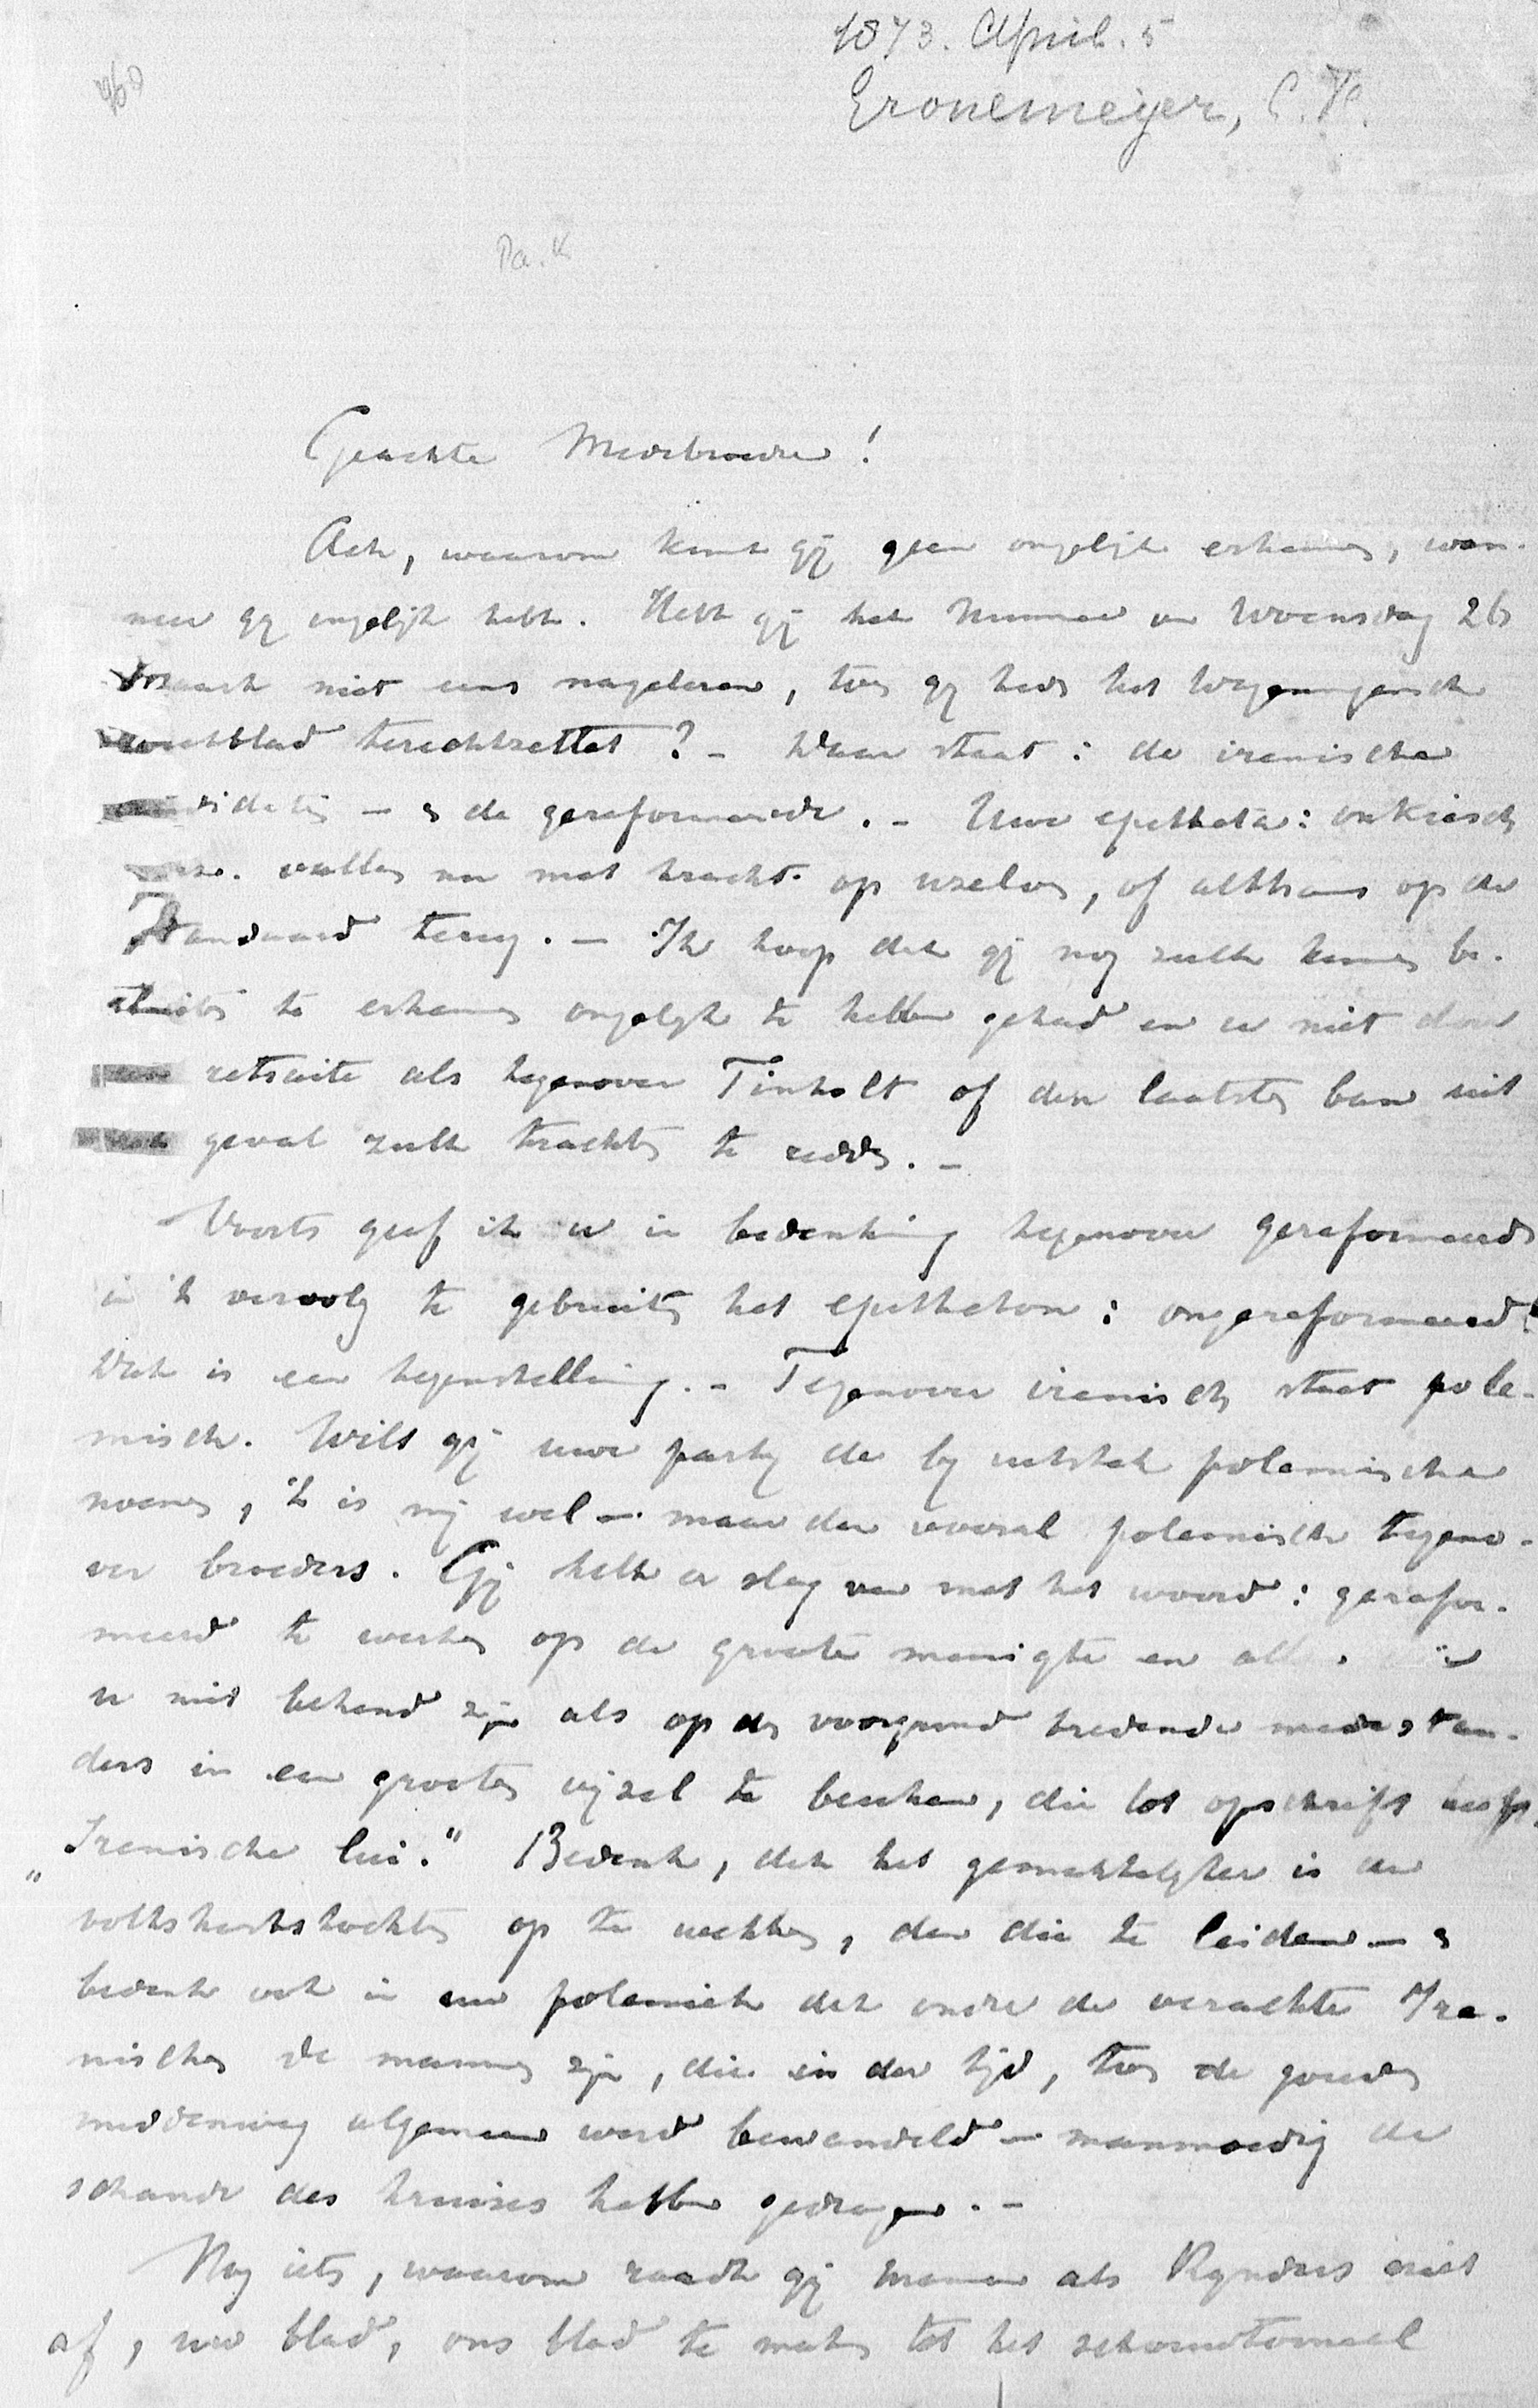 1873. April. 5
Gronemeijer, C. F.
960
Pa. K
Geachte Medebroeder!
Ach, waarom kunt gij geen ongelijk erkennen, wan-
neer gij ongelijk hebt. Hebt gij het Nummer van Woensdag 26
Maart niet eens nagelezen, toen gij heden het Wageningsch
weekblad terechtzettet? – Waar staat: de irenische
candidaten – en de gereformeerde. – Uwe epitheta: onkiesch
enz. vallen nu met kracht op uzelven, of althans op de
Standaard terug. – Ik hoop dat gij nog zult kunnen be-
sluiten te erkennen ongelijk te hebben gehad en u niet door
een retraite als tegenover Tinholt of den laatsten ban uit
het geval zult trachten te redden. –
Voorts geef ik u in bedenking tegenover gereformeerd
in 't vervolg te gebruiken het epitheton: ongereformeerd.
Dat is een tegenstelling. – Tegenover irenisch staat pole-
misch. Wilt gij uwe partij de bij uitstek polemische
noemen, 't is mij wel – maar dan vooral polemisch tegeno-
ver broeders. Gij hebt er slag van met het woord: gerefor-
meerd te werken op de groote menigte en die
u niet bekend zijn als op den voorgrond tredende medestan-
ders in een grooten vijzel te , die tot opschrift heeft
„Irenische lui." Bedenk, dat het gemakkelijker is de
volkshartstochten op te wekken, dan die te leiden – en
bedenk ook in uw polemiek dat onder de verachte Ire-
nischen de mannen zijn, die in der tijd, toen de gouden
middenweg algemeen werd bewandeld – manmoedig de
schande des kruises hebben gedragen. –
Nog iets, waarom raadt gij mannen als Rijnders niet
af, uw blad, ons blad te maken tot het